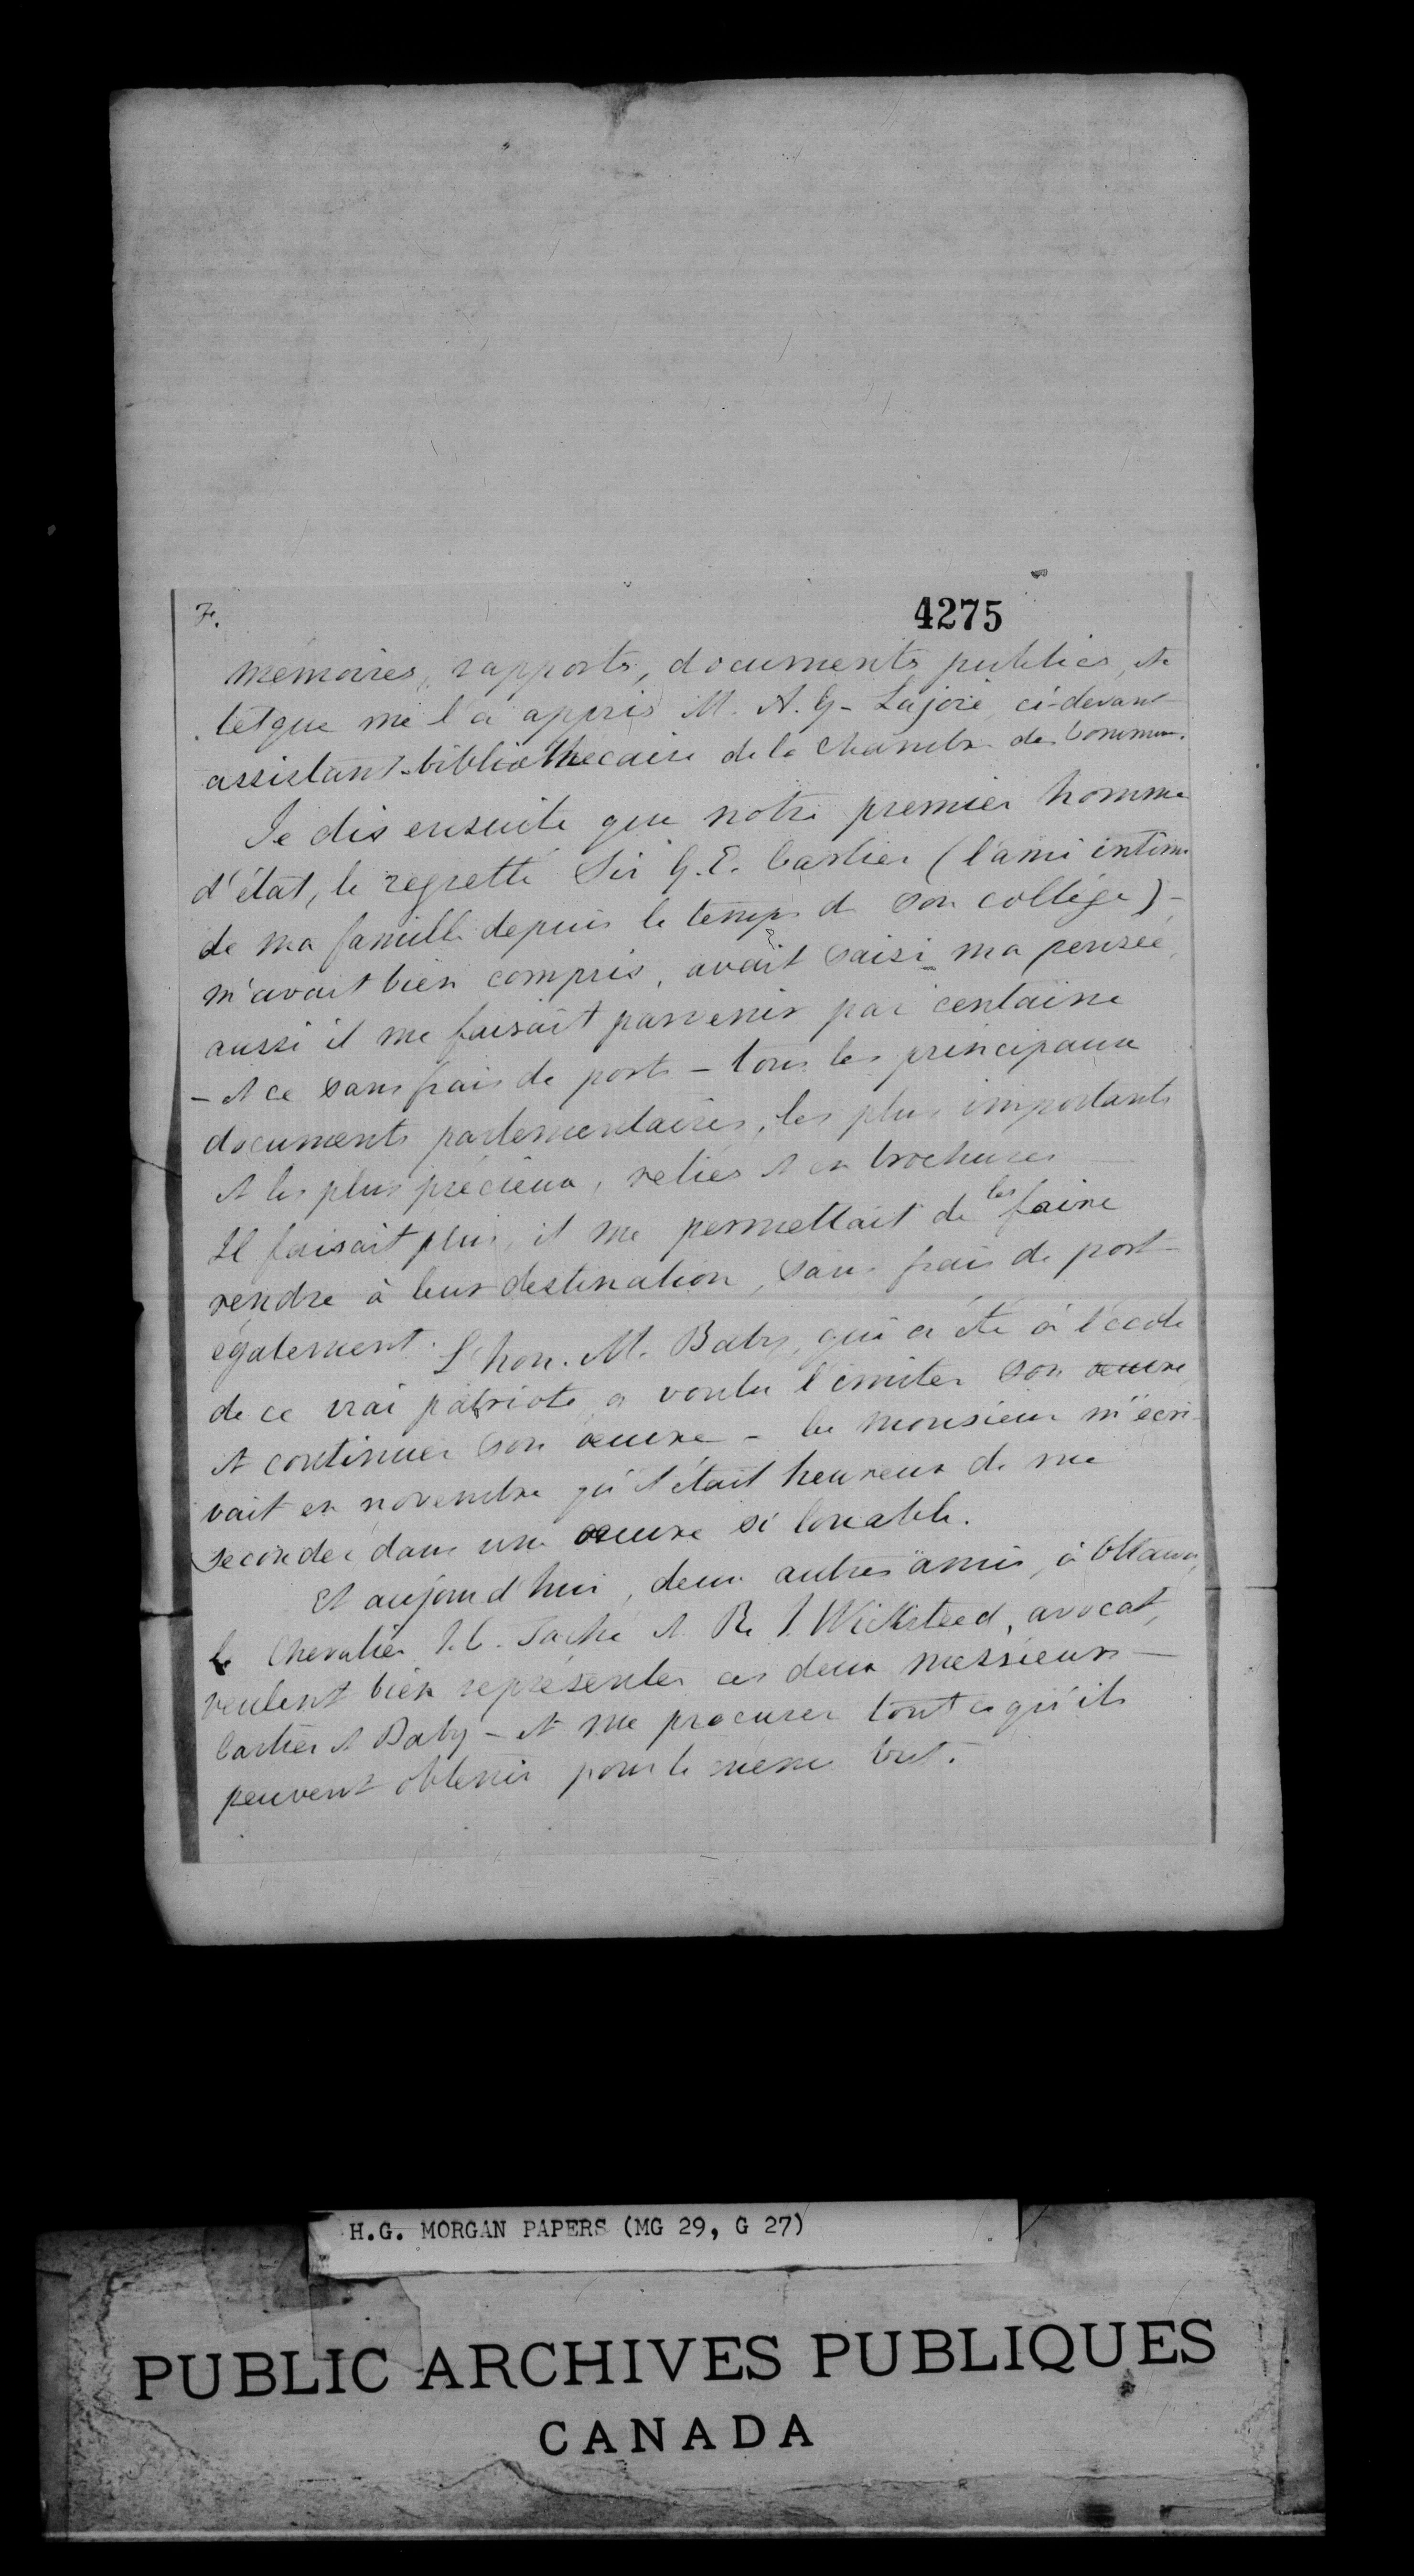 7.
4275
mémoires, rapports, documents publics, &c
tel que me l'a appris M. A. G- Lajoie, ci-devant
assistant-bibliothécaire de la Chambre des Communes.
Je dis ensuite que notre premier homme
d'état, le regretté Sir G. E. Cartier (l'ami intime
de ma famille depuis le temps de son collége) -
m'avait bien compris, avait saisi ma pensée,
aussi il me faisait parvenir par centaine
- et ce sans frais de ports - tous les principaux
documents parlementaires, les plus importants
et les plus précieux, reliés et en brochures -
Il faisait plus, il me permettait de les faire
rendre à leur destination, sans frais de port
également. L'hon. M. Baby, qui a été à l'école
de ce vrai patriote, a voulu l'imiter son œuvre
et continuer son œuvre - Ce monsieur m'écri-
vait en novembre qu'il était heureux de me
seconder dans une œuvre si louable.
Et aujourd'hui, deux autres amis, à Ottawa,
le Chevalier J. C. Taché et R. J. Wicksteed, avocat,
veulent bien représenter ces deux messieurs -
Cartier et Baby - et me procurer tout ce qu'ils
peuvent obtenir pour le même but.
H.G. MORGAN PAPERS (MG 29, G 27)
PUBLIC ARCHIVES PUBLIQUES
CANADA